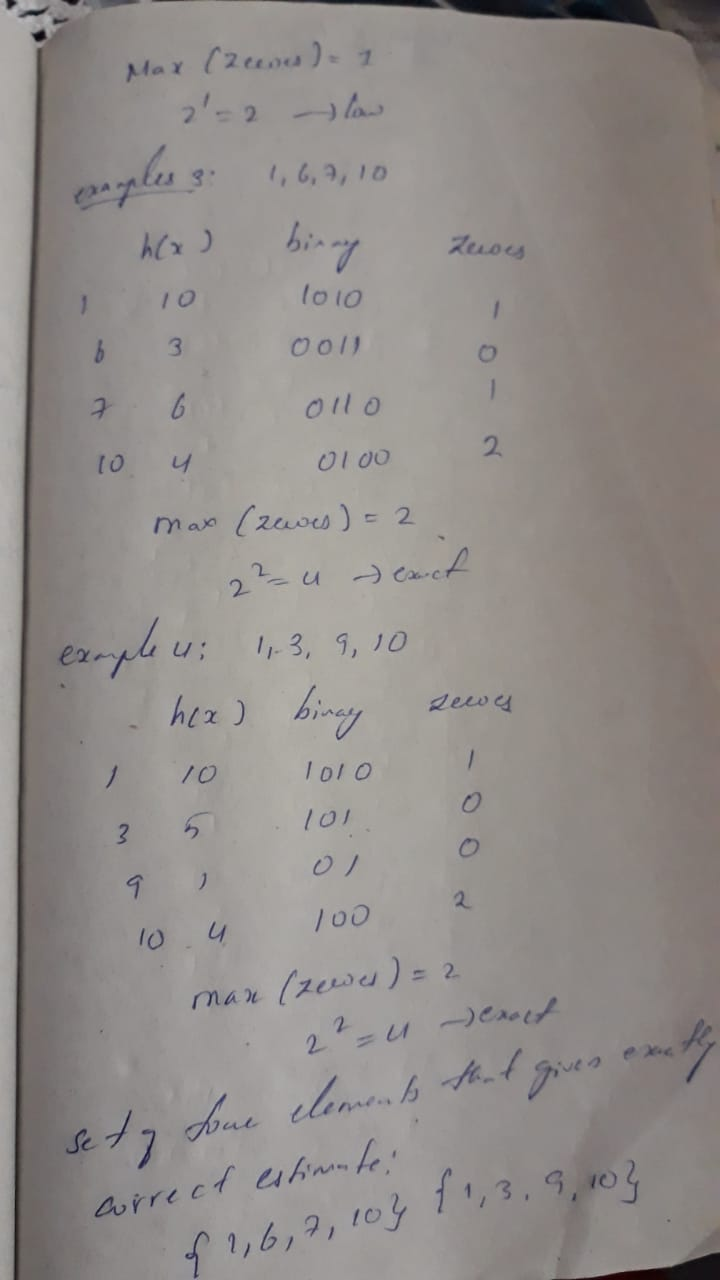 Max (zeroes) = 1
2^1 = 2 → low
examples 3: 1, 6, 7, 10
h(x) binary zeroes
1 10 1010 1
6 3 0011 0
7 6 0110 1
10 4 0100 2
max (zeroes) = 2
2^2 = 4 → exact
example 4: 1, 3, 9, 10
h(x) binary zeroes
1 10 1010 1
3 5 101 0
9 1 01 0
10 4 100 2
max (zeroes) = 2
2^2 = 4 → exact
set of four elements that gives exactly
correct estimate:
{1, 6, 7, 10} {1, 3, 9, 10}